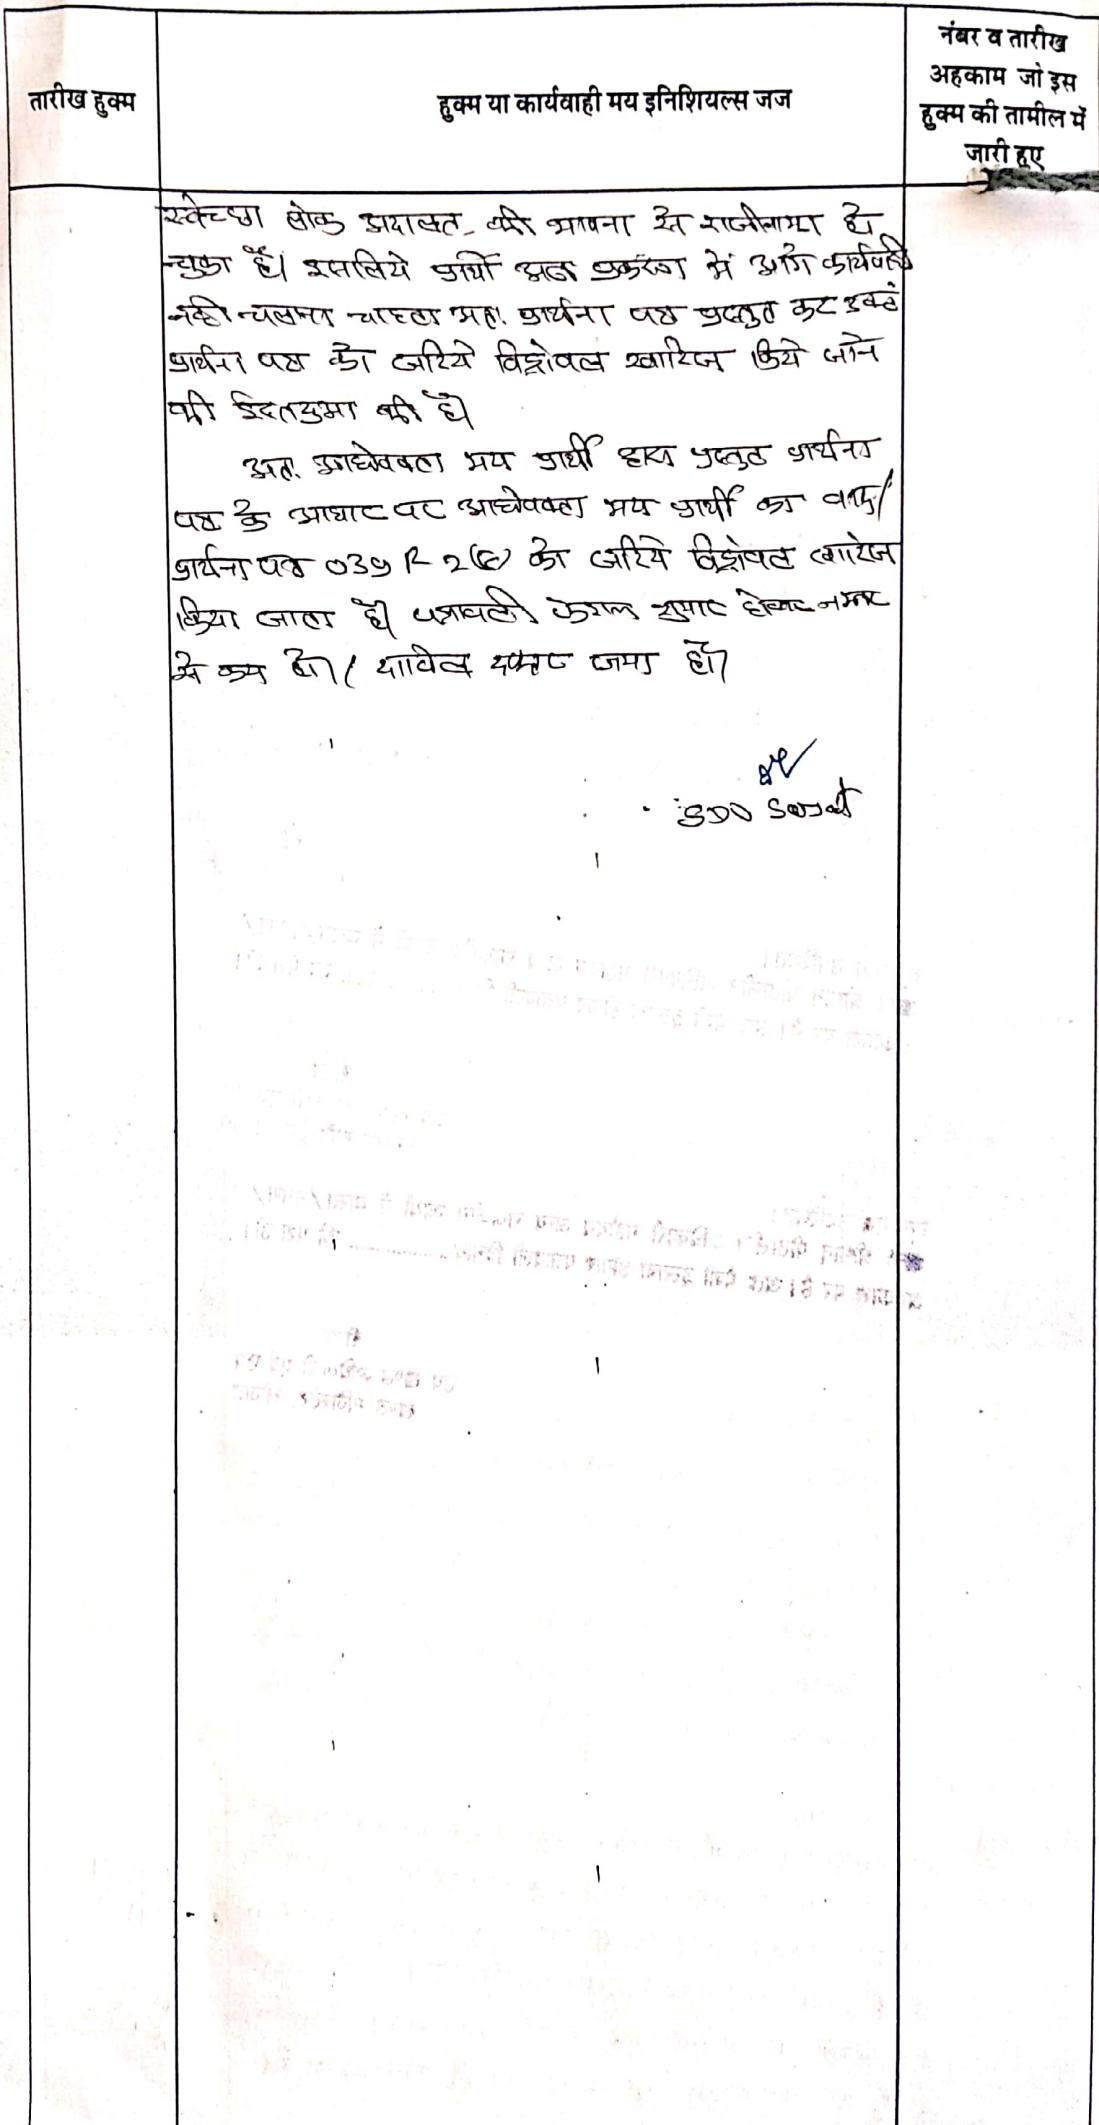 तारीख हुक्म
हुक्म या कार्यवाही मय इनिशियल्स जज
नंबर व तारीख
अहकाम जो इस
हुक्म की तामील में
जारी हुए
स्वेच्छा लोक अदालत की भावना से राजीनामा हो
चुका है। इसलिये प्रार्थी अतः प्रकरण में आगे कार्यवाही
नही चलाना चाहता अतः प्रार्थना पत्र प्रस्तुत कर
प्रार्थना पत्र को जरिये विड्रोवल खारिज किये जाने
की इस्तदुआ की है।
अतः अधिवक्ता मय प्रार्थी द्वारा प्रस्तुत प्रार्थना
पत्र के आधार पर अधिवक्ता मय प्रार्थी का वाद/
प्रार्थना पत्र 039 R 2 को जरिये विड्रोवल खारिज
किया जाता है। पत्रावली फैसल शुमार होकर नम्बर
से कम हो। दाखिल दफ्तर जमा हो।
SDO Sojat